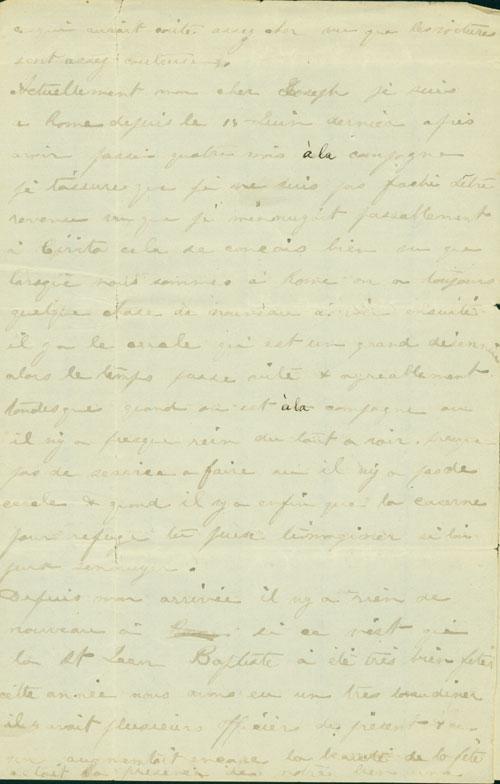 ce qui aurait coûté assez cher vu que les voitures
sont assez couteuses.
Actuellement mon cher Joseph je suis
a Rome depuis le 18 Juin dernier après
avoir passé quatre mois à la campagne
je t'assure que je ne suis pas faché d'être
revenu vu que je m'ennuyait passablement
à cela se conçois bien vu que
lorsque nous sommes à Rome on a toujours
quelque chose de nouveau à voir ensuite
il y a le cercle qui est un grand
alors le temps passe vite & agreablement
tandesque quand on est à la campagne ou
il n'y a presque rien du tout a voir. presque
pas de service a faire ou il n'y a pas de
cercle & quand il n'y a enfin que la caserne
pour refuge tu peux t'imaginer si l'on
peut s'ennuyer.
Depuis mon arrivée il n'y a rien de
nouveau à si ce n'est que
la St Jean Baptiste à été très bien fêté
cette année nous avons eu un tres beau diner
il y avait plusieurs Officiers de présent
augmentait encore la beauté de la fête
la présence de notre